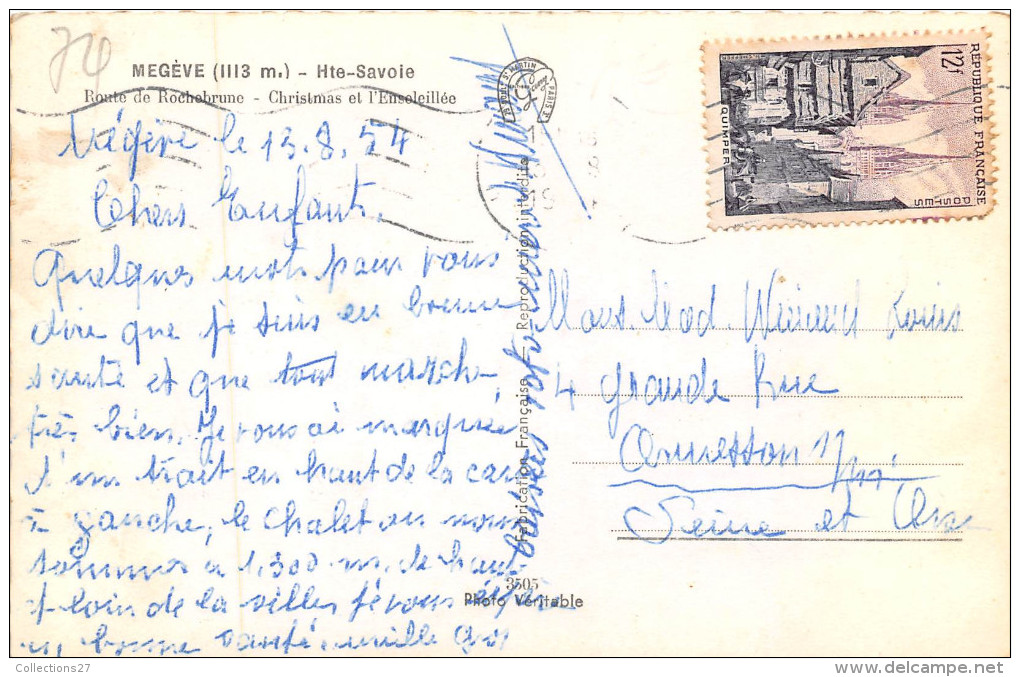 74
MEGÈVE (1113 m.) - Hte-Savoie
Route de Rochebrune - Christmas et l'Ensoleillée
Mégève le 13.8.54
Chers Enfants,
Quelques mots pour vous
dire que je suis en bonne
santé et que tout marche
très bien, Je vous ai marquée
d'un trait en haut de la cart
à gauche, le chalet ou nous
sommes à 1.300 m. de haut
et loin de la villes je vous
bonne santé, mille
baisers
Fabrication Française - Reproduction interdite
3505
Photo Véritable
ST MARTIN
PARIS
RÉPUBLIQUE FRANÇAISE
POSTES
12f
QUIMPER
Mons. Mad. Louis
4 grande Rue
Ormesson
Seine et Oise
Collections27
www.delcampe.net